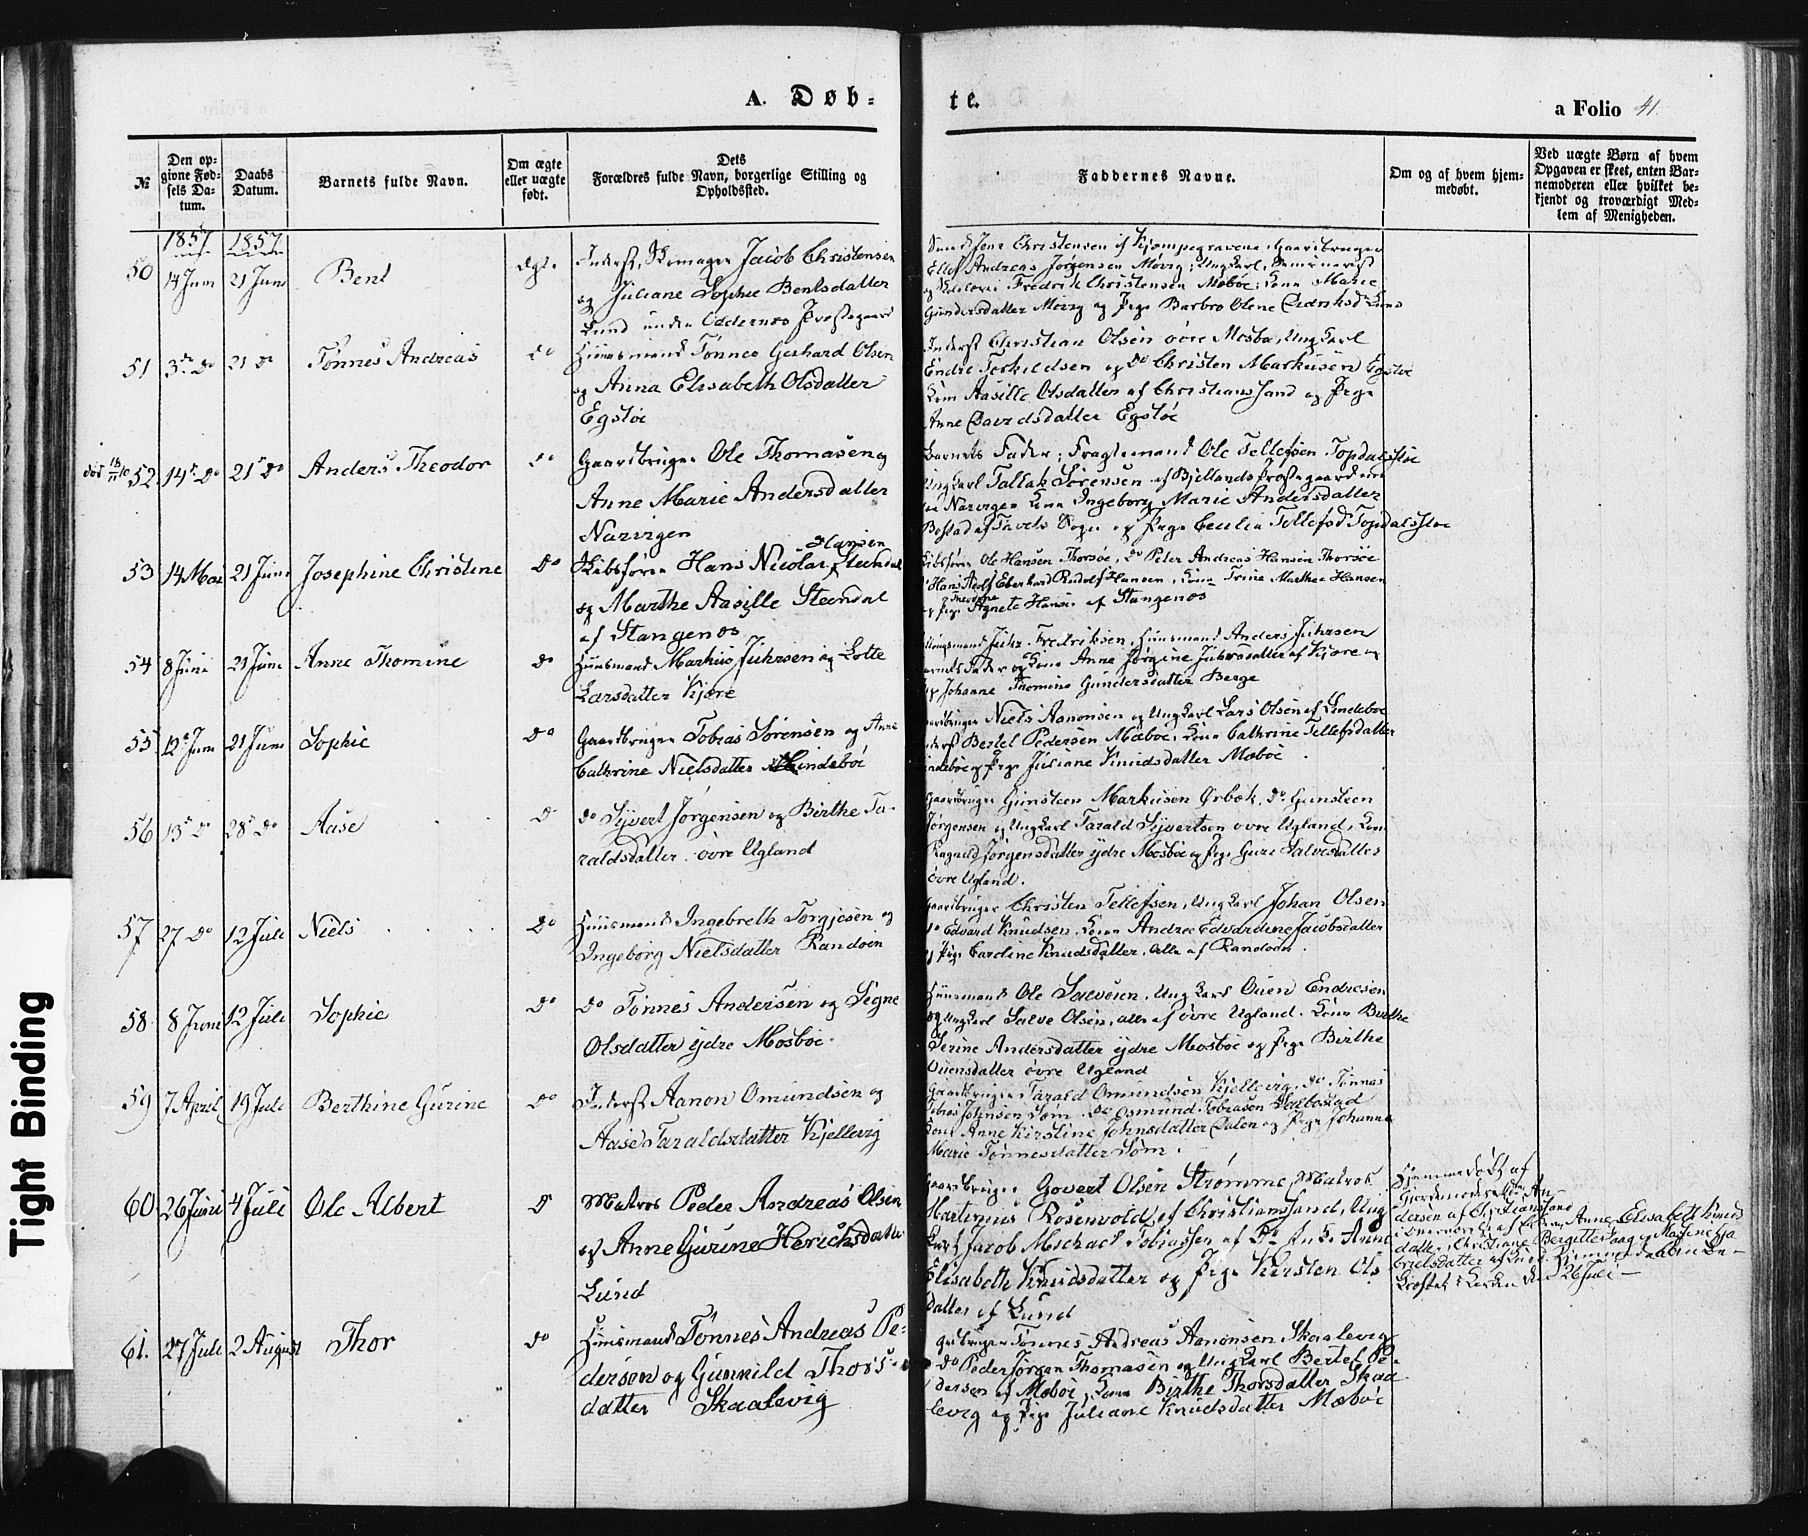 A. Døb-
te.
a Folio 41.
№
Den opgivne Fødsels Datum.
Daabs Datum.
Barnets fulde Navn.
Om ægte eller uægte født.
Dets Forældres fulde Navn, borgerlige Stilling og Opholdssted.
Faddernes Navne.
Om og af hvem hjemmedøbt.
Ved uægte Børn af hvem Opgaven er skeet, enten Barnemoderen eller hvilket bekjendt og troværdigt Medlem af Menigheden.
1857 1857
50 14 Juni 21 Juni Bent ægte
Inderst, Jacob Christensen
og Juliane Sophie Bentsdatter
Lund under Oddernes Præstegaard
Jens Christensen af Kjempegravene, Gaardbruger
Andreas Jørgensen Møvig; Ungkarl, Seminarist
Fredrik Christensen Mæbøe; Kone Marie
Gundersdatter Møvig og Pige Barbro Olene Lund
51 3die Do 21 Do Tønnes Andreas Do
Huusmand Tønnes Gerhard Olsen
og Anna Elisabeth Olsdatter
Egsløe
Inderst Christian Olsen øvre Mosbø, Ungkarl
Endre Torkildsen og Do Christen Markusen Egsløe
Kone Aasille Olsdatter af Christianssand og Pige
Anne Davidsdatter Egsløe
død 52 14de Do 21de Do Anders Theodor Do
Gaardbruger Ole Thomasen og
Anne Marie Andersdatter
Narvigen
Barnets Fader; Fragtemand Ole Tellefsen Topdalsløe
Ungkarl Tallak Sørensen af Bjellands Præstegaard
Narvigen Kone Ingeborg Marie Andersdatter
Bostad af Tveits Sogn og Pige Cecilia Tellefsd Topdalsløe
53 14 Mai 21 Juni Josephine Christine Do
Skibsfører Hans Nicolai Hansen Steendal
og Marthe Aasille Steendal
af Stangenes
Skibsfører Ole Hansen Thorsøe, Do Peter Andreas Hansen Thorsøe
Hans Adolf Eberhard Rudolf Hansen, Kone Trine Marthea Hansen
og Pige Agnete Theodine Hansen af Stangenes
54 8 Juni 21 Juni Anne Thomine Do
Huusmand Markus Juhrsen og Lotte
Larsdatter Kjøre
Juhr Fredriksen, Huusmand Anders Juhrsen
Barnets Fader og Kone Anne Jørgine Juhrsdatter af Kjøre og
Pige Johanne Thomine Gundersdatter Berge
55 12te Juni 21 Juni Sophie Do
Gaardbruger Tobias Sørensen og Anne
Cathrine Nielsdatter Lindebøe
Gaardbruger Niels Aanonsen og Ungkarl Lars Olsen af Lindebøe
Inderst Bertel Pedersen Mæbøe, Kone Cathrine Tellefsdatter
Lindebøe og Pige Juliane Knudsdatter Mæbøe
56 13de Do 28de Do Aase Do
Do Syvert Jørgensen og Birthe Ta-
raldsdatter øvre Ugland
Gaardbruger Gunsteen Markusen Ørbæk, Do Gunsteen
Jørgensen og Ungkarl Tarald Syvertsen øvre Ugland, Kone
Ragnild Jørgensdatter ydre Mosbøe og Pige Gure Salvesdatter
øvre Ugland.
57 27 Do 12 Juli Niels Do
Huusmand Ingebreth Torgjesen og
Ingeborg Nielsdatter Randøen
Gaardbruger Christen Tellefsen, Ungkarl Johan Olsen
Do Edvard Knudsen, Kone Andrea Edvardine Jacobsdatter
og Pige Caroline Knudsdatter, alle af Randøen.
58 8 Juni 12 Juli Sophie Do
Do Tønnes Andersen og Signe
Olsdatter ydre Mosbøe.
Huusmand Ole Salvesen, Ungkarl Ouen Endresen
og Ungkarl Salve Olsen, alle af øvre Ugland. Kone Birthe
Serine Andersdatter ydre Mosbøe og Pige Birthe
Ouensdatter øvre Ugland
59 7 April 19 Juli Berthine Gurine Do
Inderst Aanon Omundsen og
Aase Taraldsdatter Kjellevig
Gaardbruger Tarald Omundsen Kjellevig, Do Tønnes
Tobias Johnsen Søm. Do Osmund Tobiasen
Kone Anne Kirstine Johnsdatter Dalen og Pige Johanne
Marie Tønnesdatter Søm.
60 26 Juni 4 Juli Ole Albert Do
Matros Peder Andreas Olsen
og Anne Gurine Herichsdatter
Lund
Gaardbruger Govert Olsen Strømme, Matros
Martinius Rosenvold af Christianssand, Ung-
karl Jacob Michael Tobiassen af Anne
Elisabeth Knudsdatter og Pige Kirsten Ols-
datter af Lund
Hjemmedøbt af
Gjordemoder An-
dersen af Christianssand
i Overværelse af Anne Elisabeth Knuds-
datter, Christiane Bergitte og
af Lund. Hjemmedaaben be-
kræftet i Kirken den 26 Juli
61. 27 Juli 2 August Thor Do
Huusmand Tønnes Andreas Pe-
dersen og Gunnild Thors-
datter Skaalevig
Gbruger Tønnes Andreas Aanonsen Skaalevig
Do Peder Jørgen Thomasen og Ungkarl Bertel Pe-
dersen af Mæbøe, Kone Birthe Thorsdatter Skaa-
levig og Pige Juliane Knudsdatter Mæbøe
Tight Binding